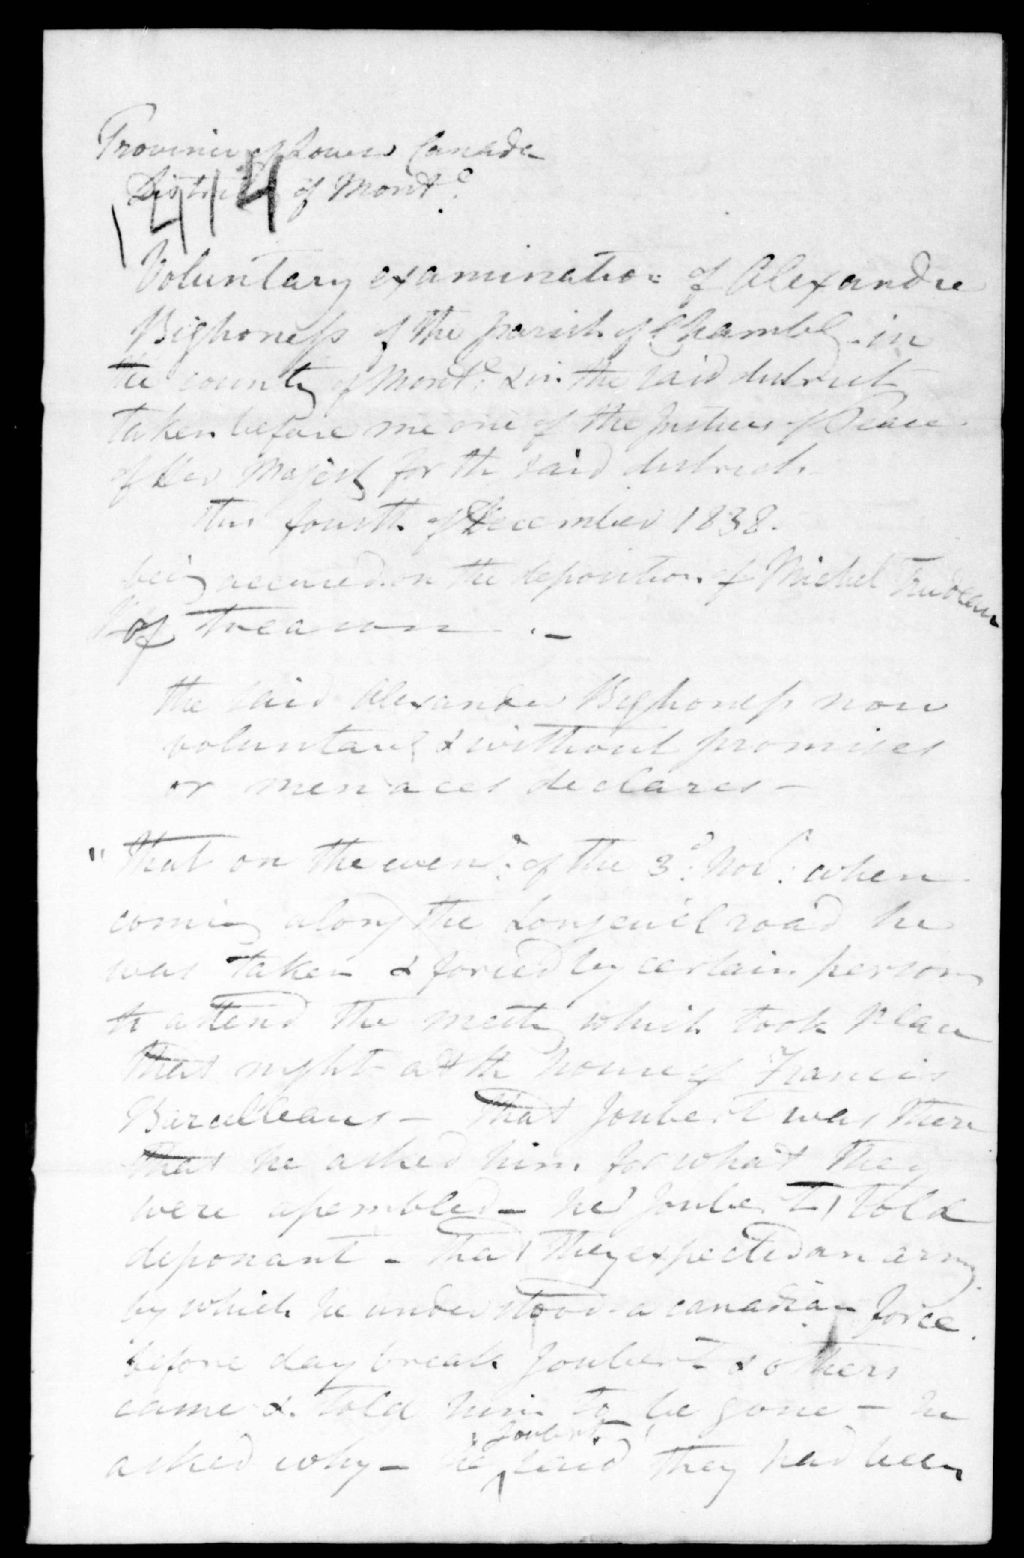 Province of Lower Canada
District of Mont.l
1414
Voluntary examination of Alexandre
Bighoness of the parish of Chambly in
the county of Mont.l & in the said district
taken before me one of the Justices of Peace
of Her Majesty for the said district
this fourth of December 1838.
being accused on the deposition of Michel Trudeau
of treason . —
the said Alexander Bighoness now
voluntary & without promises
or menaces declares —
" that on the even.g of the 3.d Nov.r when
coming along the Longueuil road he
was taken & forced by certain persons
to attend the meeting which took place
that night at the house of Francis
— that Joubert was there
that he asked him for what they
were assembled — he Joubert told
deponant — that they expected an army
by which he understood a canadian force.
before day break Joubert & others
came & told him to be gone — he
asked why — he Joubert said they had been